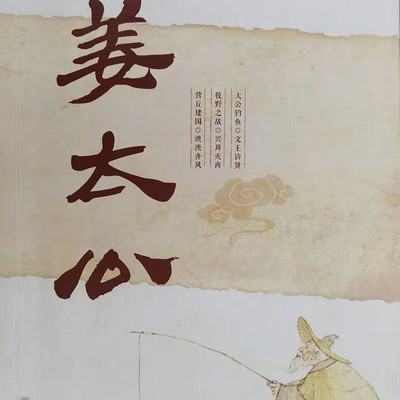 姜太公
太公钓鱼◎文王访贤
牧野之战◎兴周灭商
营丘建国◎泱泱齐风